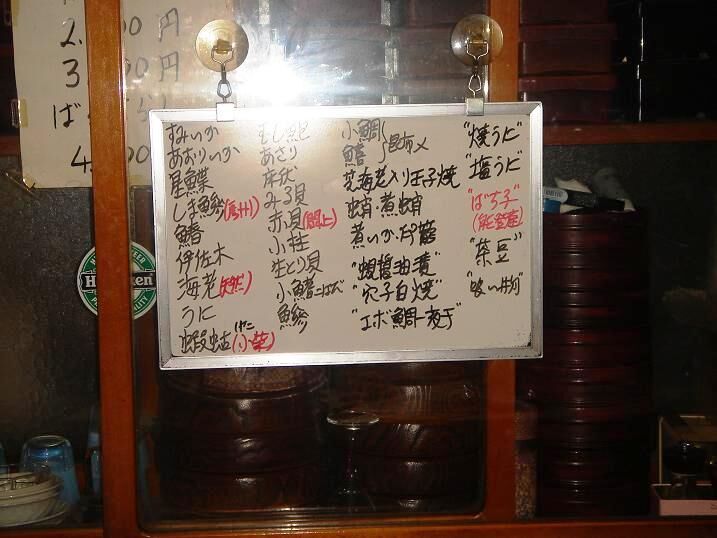 円
円
すみいか
あおりいか
星鰈
しま鯵
鰆
伊佐木
海老(天然)
うに
蝦蛄(小柴)
むし鮑
あさり
みる貝
赤貝(閖上)
小柱
生とり貝
小鰭
鯵
小鯛
昆布〆
芝海老入り玉子焼
蛸・煮蛸
煮いか・印籠
"蝦醤油漬"
"穴子白焼"
"エボ鯛一夜干"
"焼うに"
"塩うに"
"ばち子"
(能登産)
"茶豆"
"吸い物"
Heineken